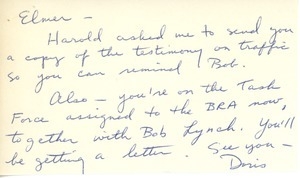 Elmer -
Harold asked me to send you
a copy of the testimony on traffic
so you can remind Bob.
Also - you're on the Task
Force assigned to the BRA now,
together with Bob Lynch. You'll
be getting a letter. See you -
Doris